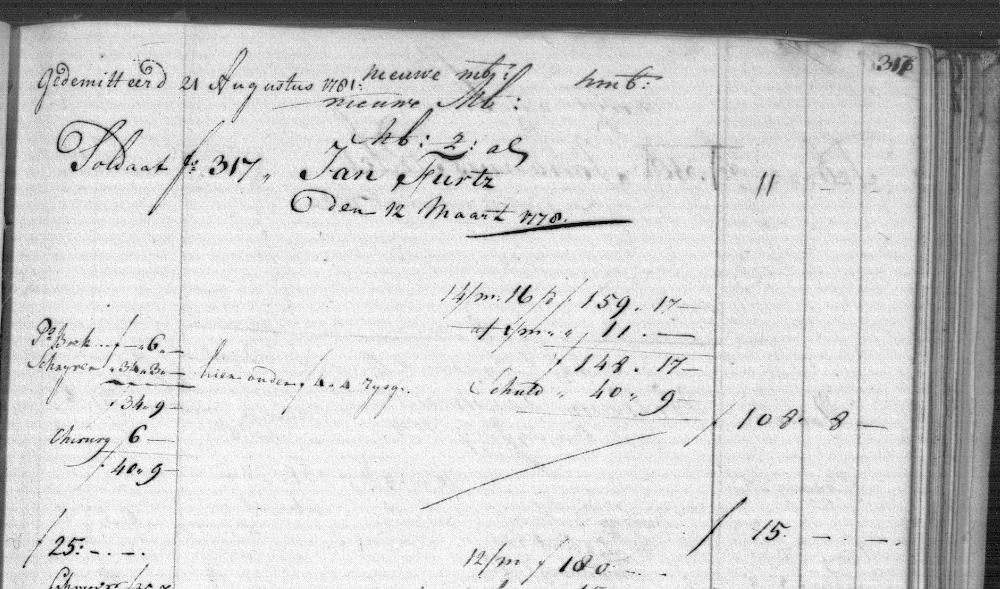 317
Gedemitteerd 21 Augustus 1781: nieuwe mb:
nieuwe Mb:
Mb: 2: al
Soldaat fo: 317 „ Jan Furtz
Den 12 Maart 1778.
11
14/m: 16 / f 159 „ 17 —
af 1/m „ „ 11 . —
f 148 „ 17 —
Schuld „ 40 „ 9 —
f 108 „ 8 —
Boek .. f — „ 6 „ —
„ 34 „ 3 „ — hier onder f
f 34 „ 9 —
Chirurg f 6 —
f 40 „ 9 —
f 15 . — . —
f 25: — . — .
12/m f 180 — . —